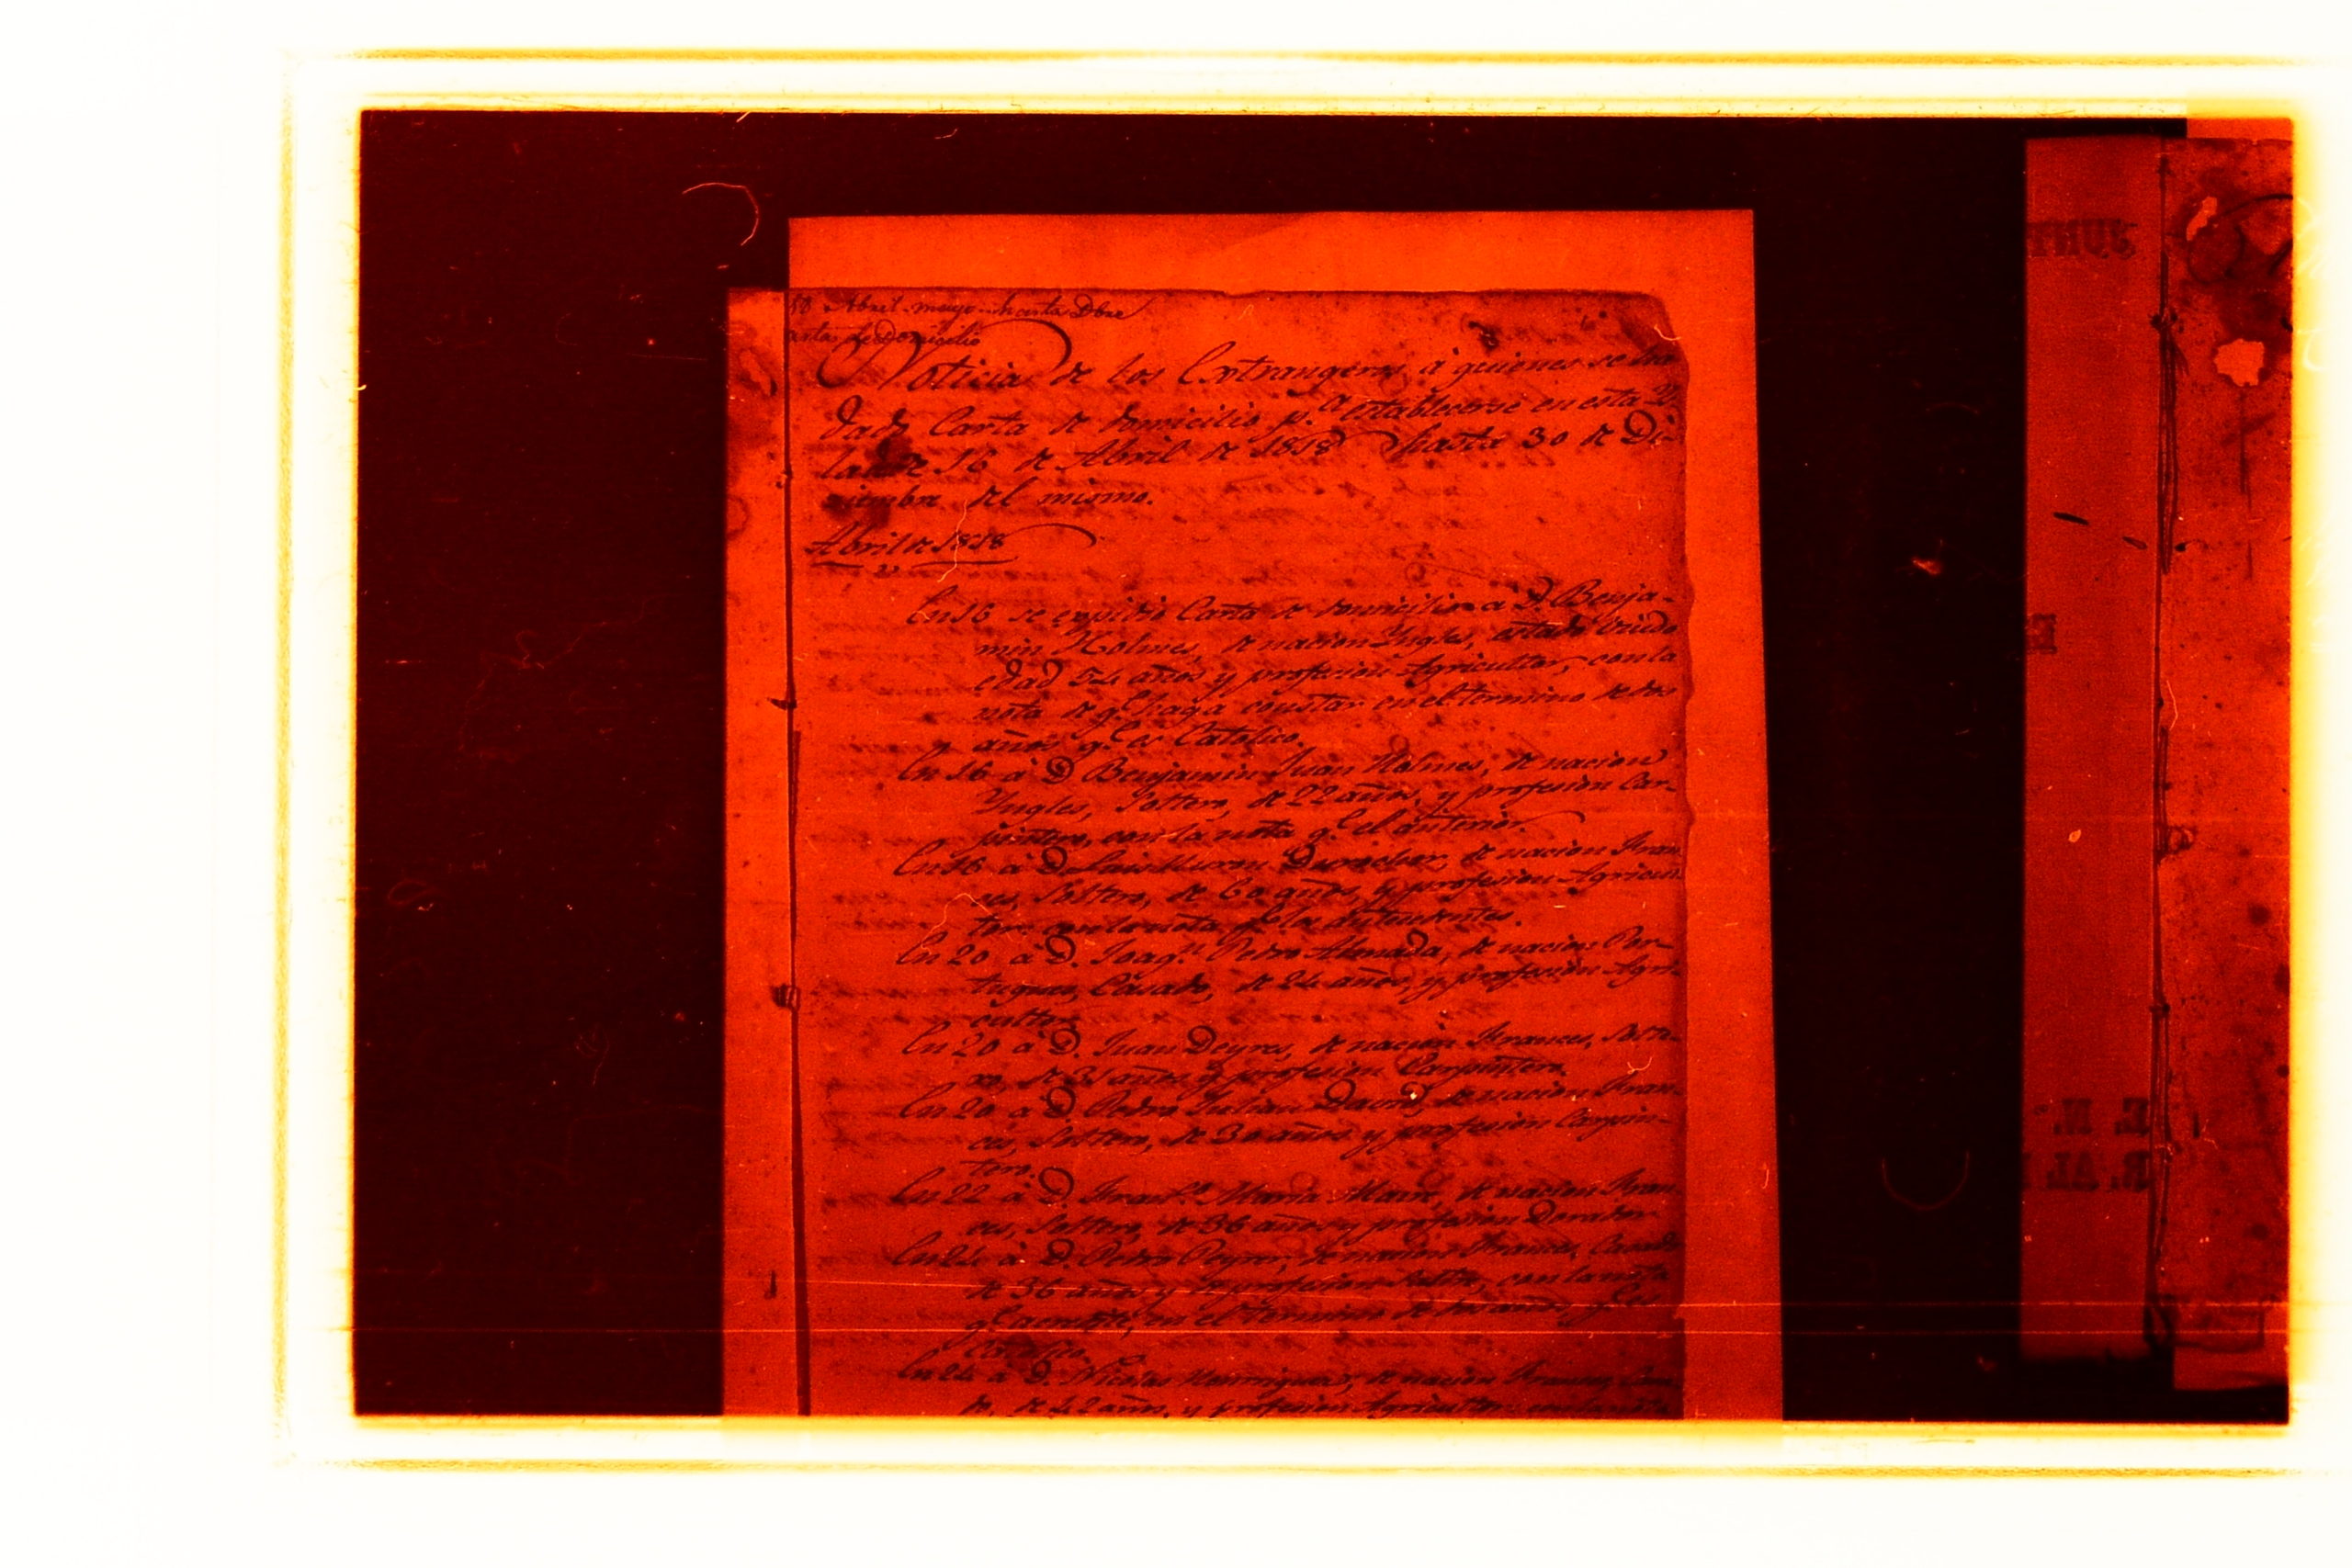 18 Abril mayo hasta Dbre
artas de Domicilio
Noticia de los Extrangeros à quienes se ha
dado Carta de domicilio p.a establecerse en esta Y
la de 16 de Abril de 1818 hasta 30 de Di-
ziembre del mismo.
Abril de 1818
En 16 se expidio Carta de domicilio a D. Benja-
min Holmes, de nacion Yngles, estado viudo
edad 54 años y profesion Agricultor, con la
nota de q.e haga constar en el termino de dos
años q.e es Catolico.
En 16 à D. Benjamin Juan Holmes, de nacion
Yngles, Soltero, de 22 años, y profesion Car-
pintero, con la nota q.e el anterior.
En 16 à D. Luis de nacion Fran
ces, Soltero, de 60 años, y profesion Agricul
tor, con la nota q.e los antecedentes.
En 20 à D. Joaq.n Pedro Almada, de nacion Por-
tugues, Casado, de 24 años, y profesion Agri-
cultor.
En 20 à D. Juan Deyres, de nacion Frances, Solte-
ro, de 35 años y profesion Carpintero.
En 20 à D. Pedro Julian David, de nacion Fran-
ces, Soltero, de 30 años y profesion Carpin-
tero.
En 22 à D. Fran.co Maria de nacion Fran
ces, Soltero, de 36 años y profesion Dorador
En 24 à D. Pedro de nacion Frances, Casado
de 36 años y de profesion con la nota
q.e acredite, en el termino de dos años q.e es
Catolico.
En 24 à D. Nicolas de nacion Frances,
de 42 años, y profesion Agricultor con la nota